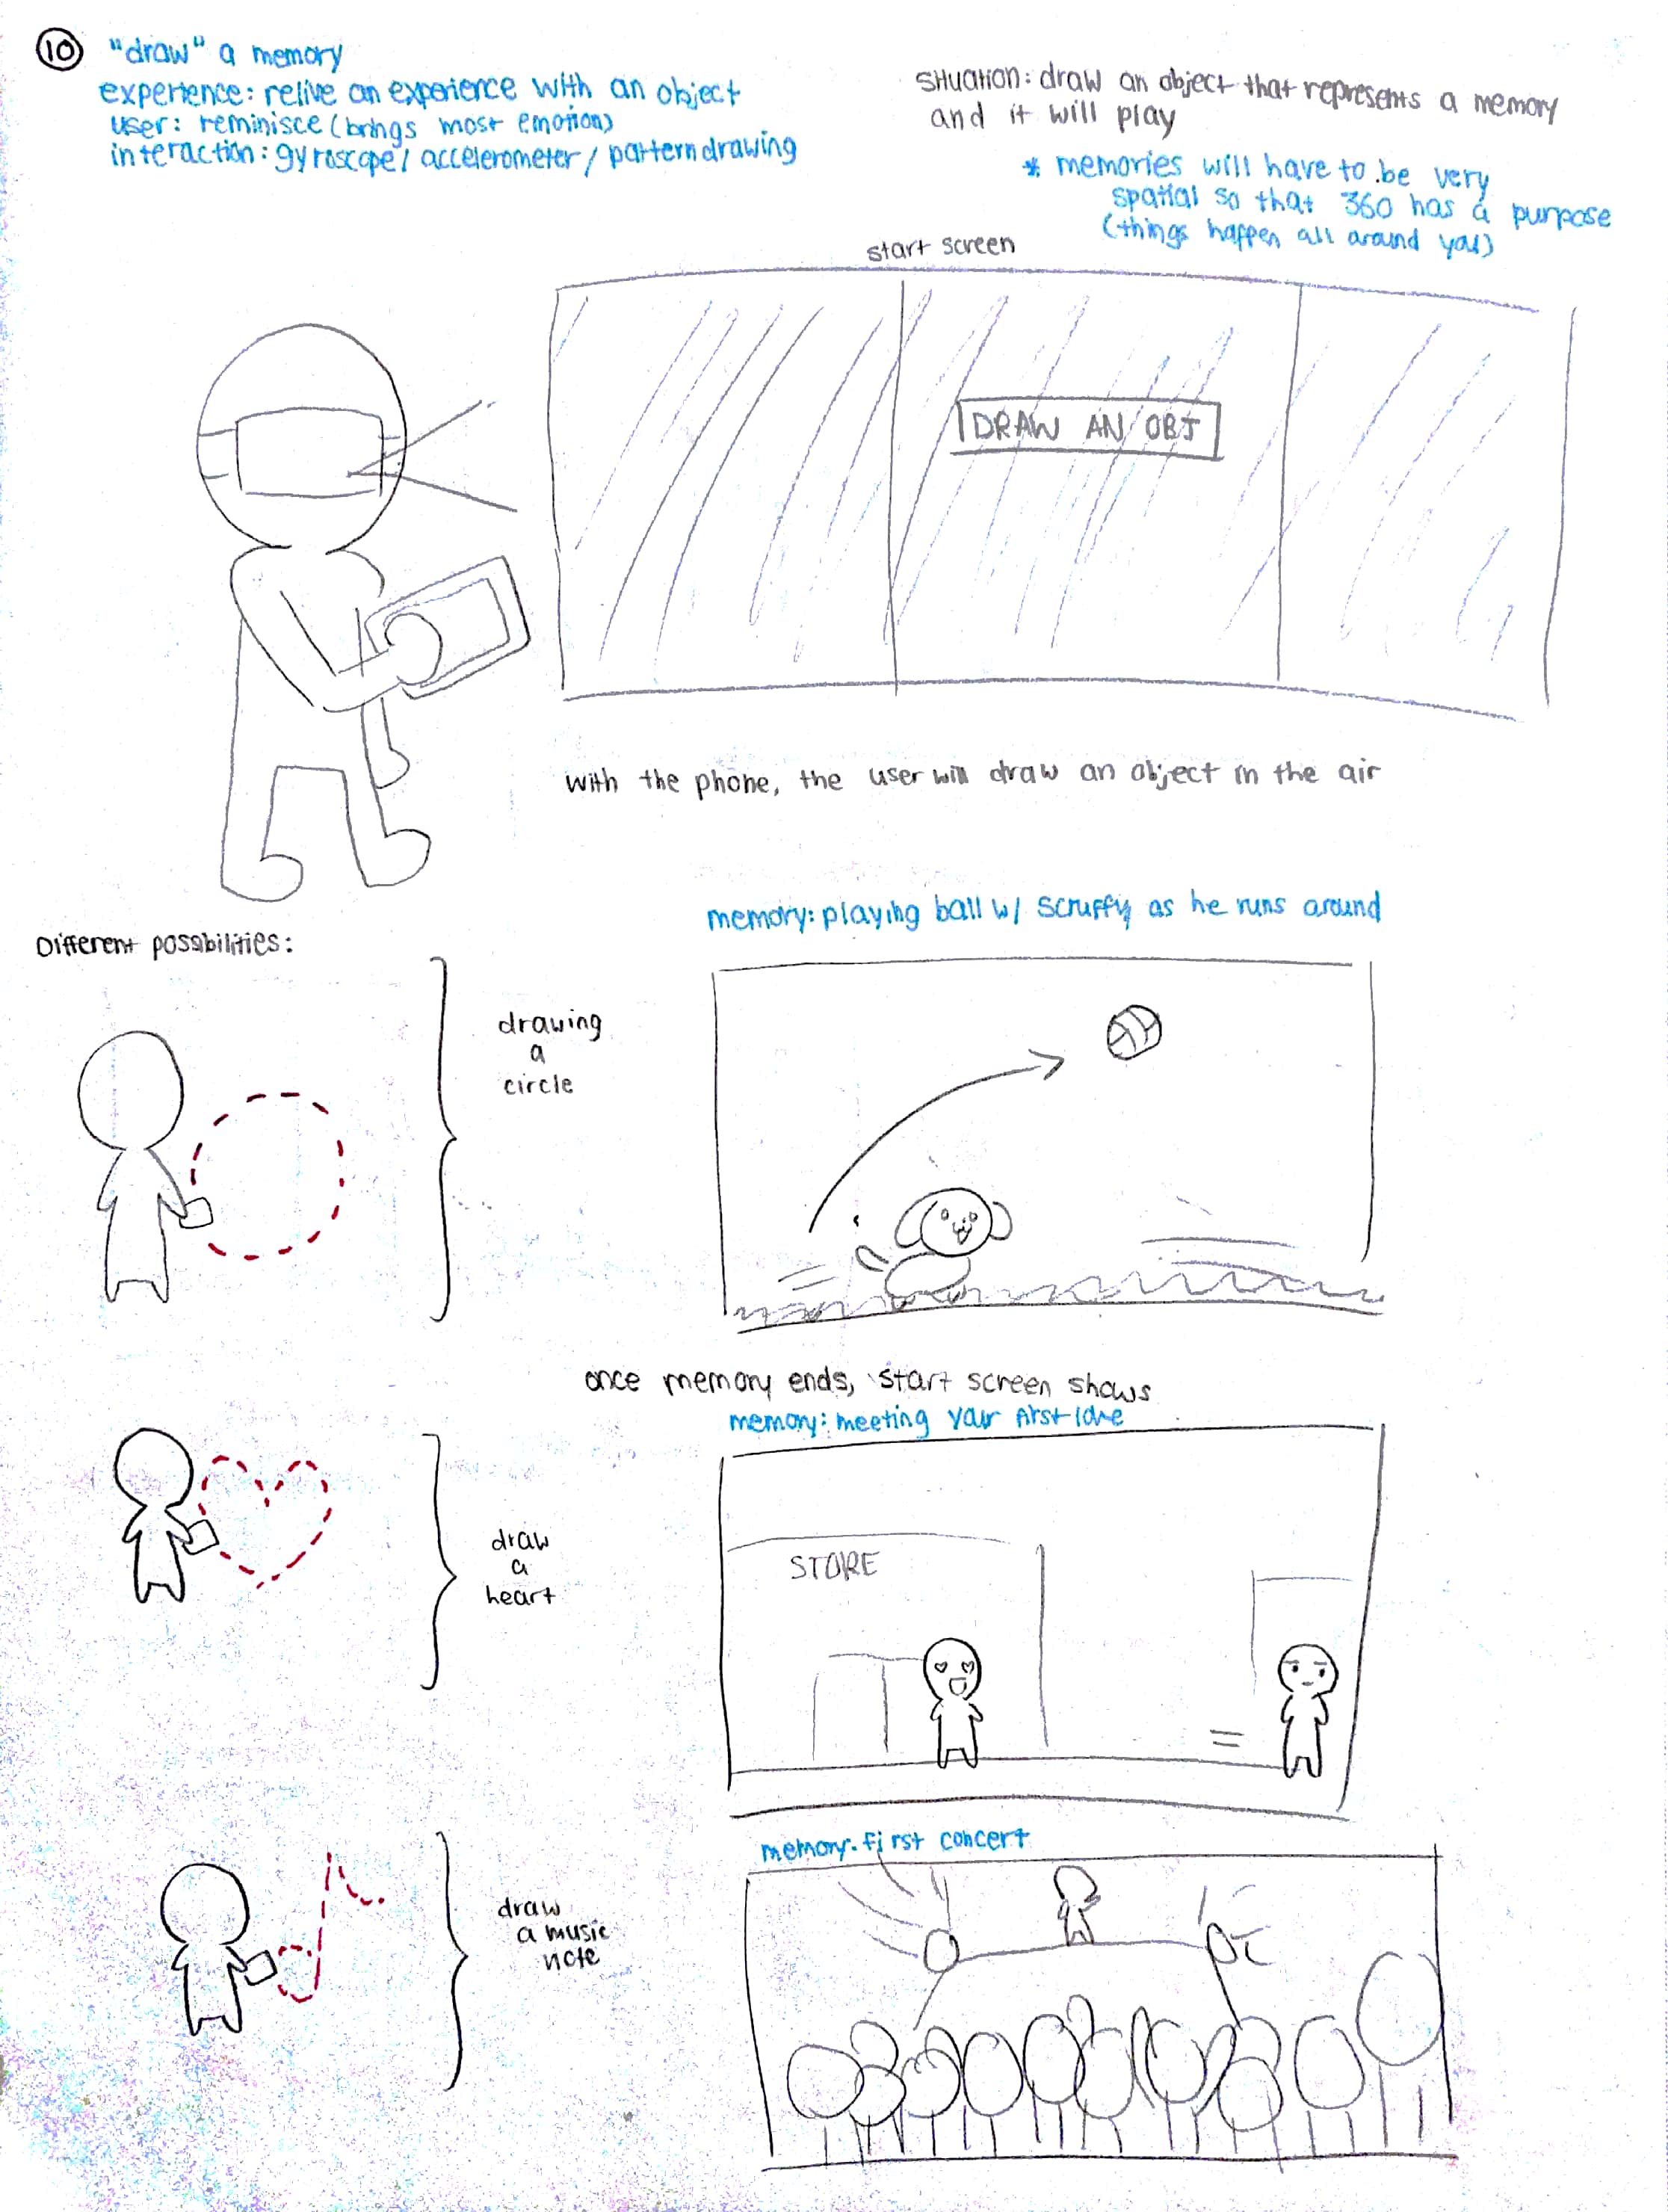 10 "draw" a memory
experience: relive an experience with an object
user: reminisce (brings most emotion)
interaction: gyroscope / accelerometer / pattern drawing
situation: draw an object that represents a memory
and it will play
* memories will have to be very
spatial so that 360 has a purpose
(things happen all around you)
start screen
DRAW AN OBJ
with the phone, the user will draw an object in the air
Different possibilities:
memory: playing ball w/ scruffy as he runs around
drawing
a
circle
once memory ends, start screen shows
memory: meeting your first love
draw
a
heart
STORE
memory: first concert
draw
a music
note